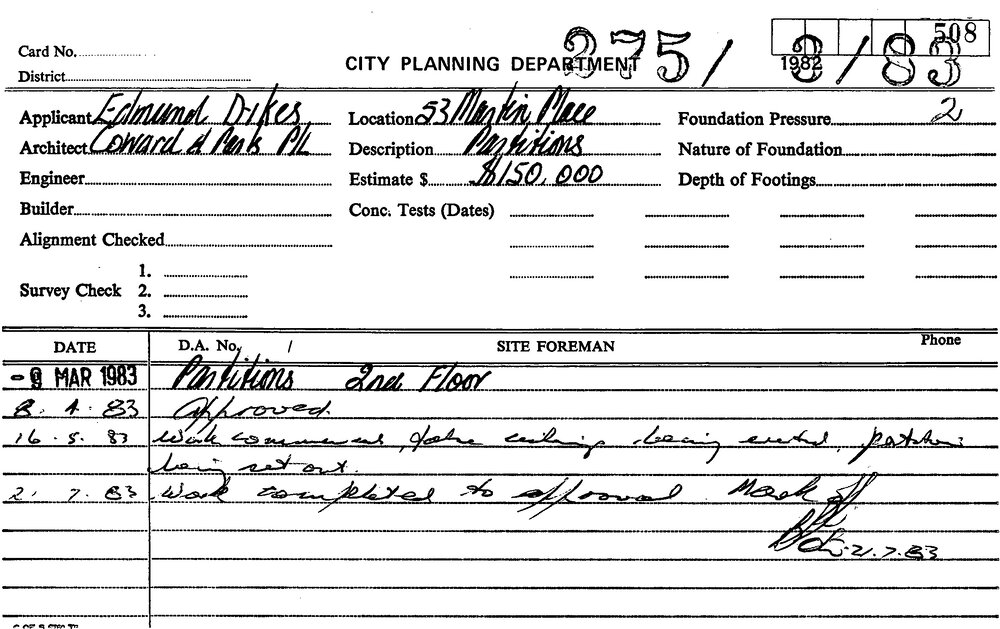 508
275/ 3/83
1982
Card No.
District
CITY PLANNING DEPARTMENT
Applicant Edmund Dykes Location 53 Martin Place Foundation Pressure 2
Architect Coward & Parts P/L Description Partitions Nature of Foundation
Engineer Estimate $ $150,000 Depth of Footings
Builder Conc. Tests (Dates)
Alignment Checked
1.
Survey Check 2.
3.
DATE D.A. No. / SITE FOREMAN Phone
MAR 1983 Partitions 2nd Floor
8. 4. 83 Approved.
16.5.83 Work commenced, false ceilings being erected,
being set out.
21.7.83 Work completed to approval. Mark off
21.7.83